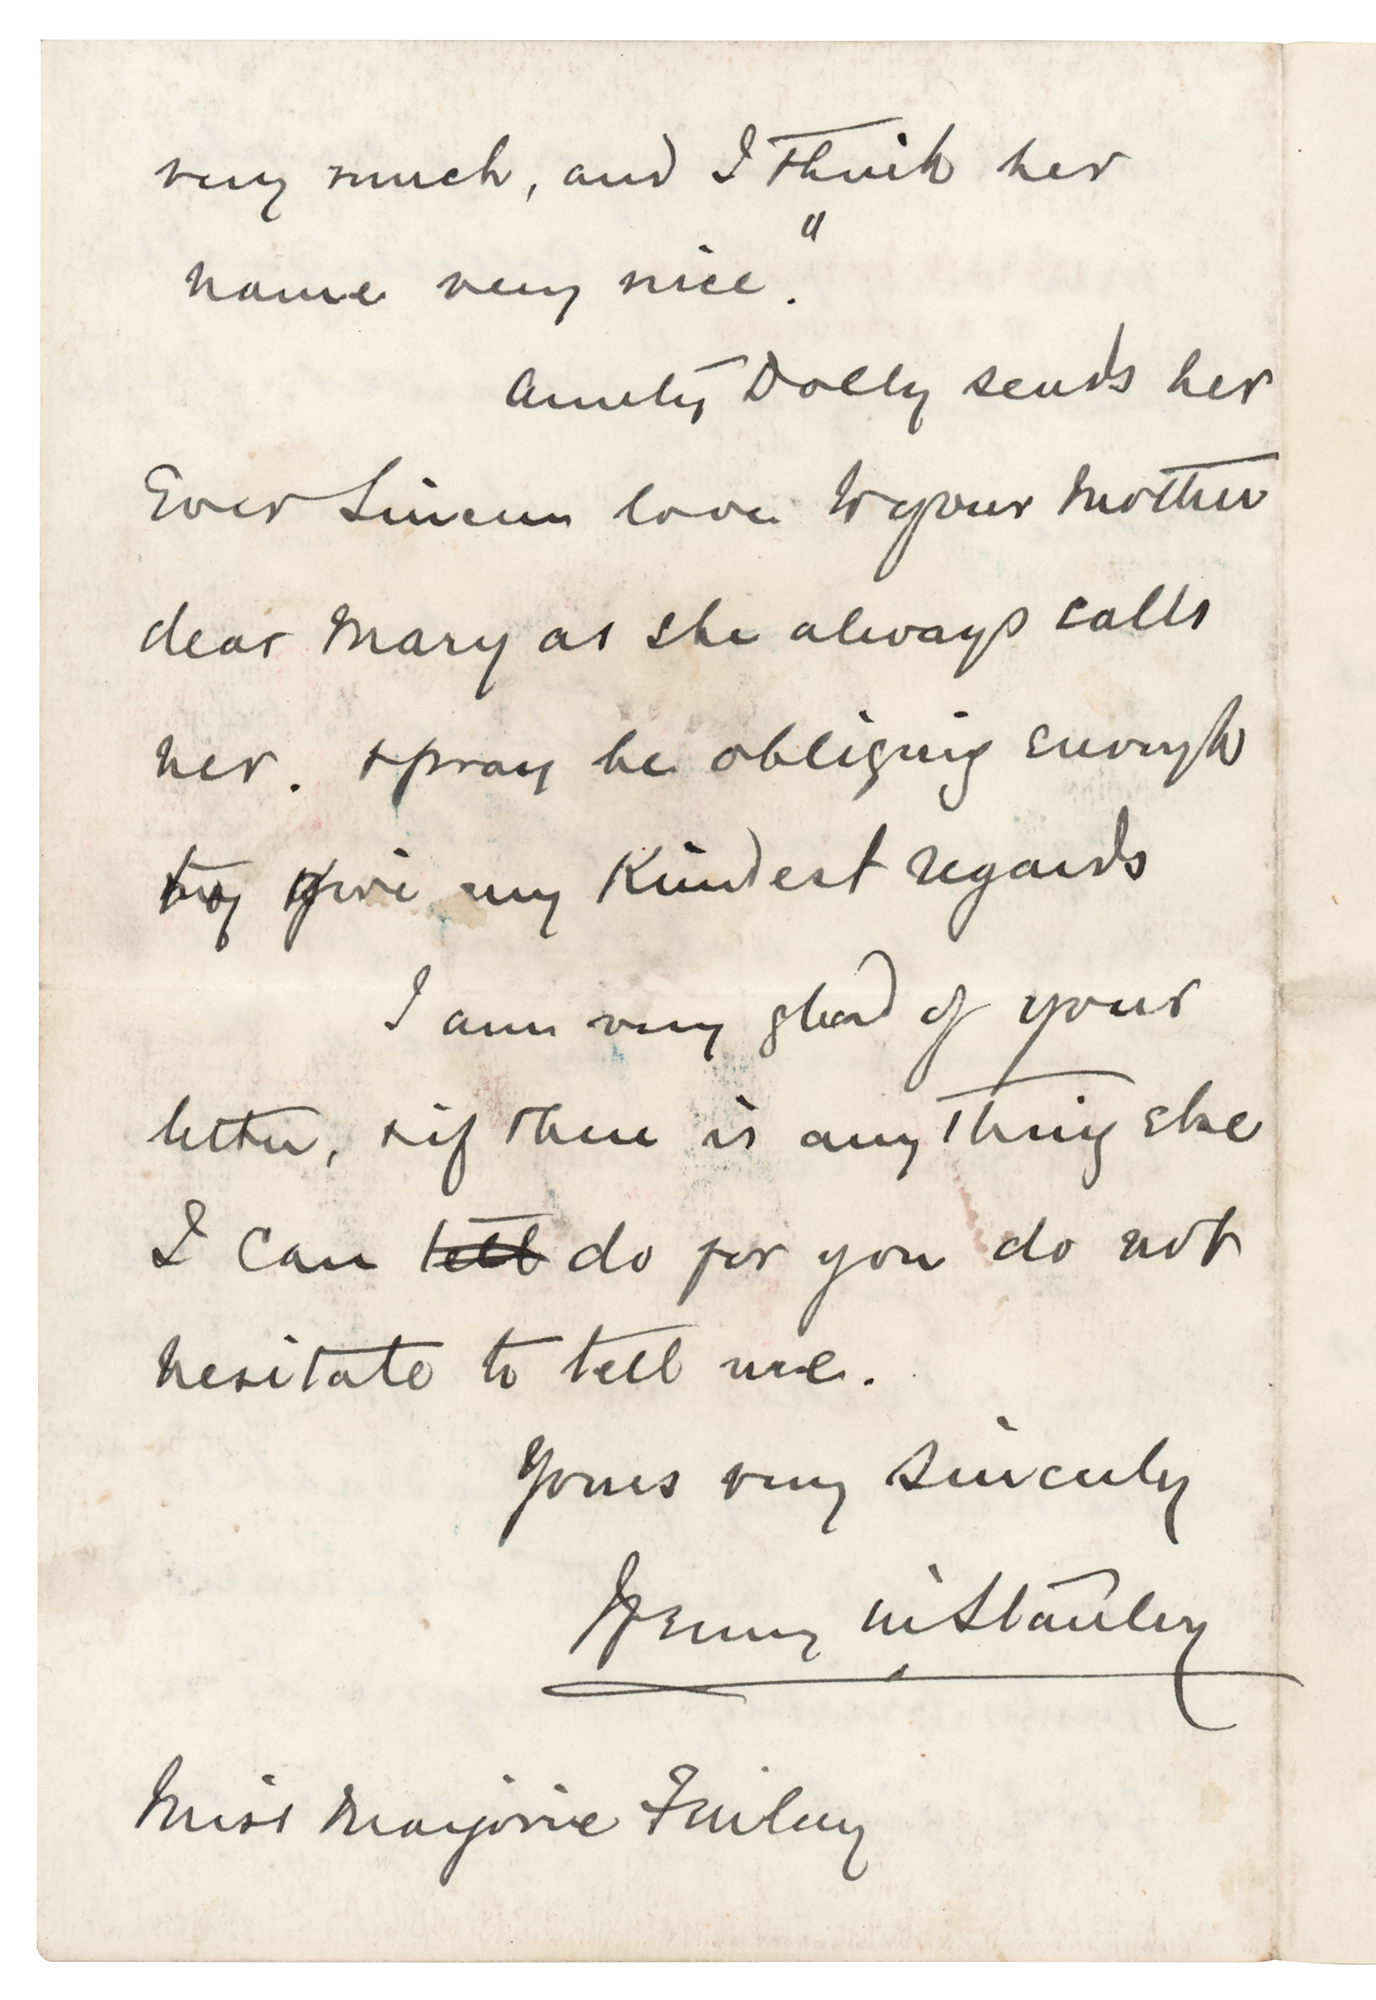 very much, and I think her
name very nice."
Aunty Dolly sends her
Ever Sincere love to your Mother
dear Mary as she always calls
her. & pray be obliging enough
to give my Kindest regards
I am very glad of your
letter, & if there is any thing else
I can tell do for you do not
hesitate to tell me.
Yours very Sincerely
Henry M Stanley
Miss Marjorie Finlay